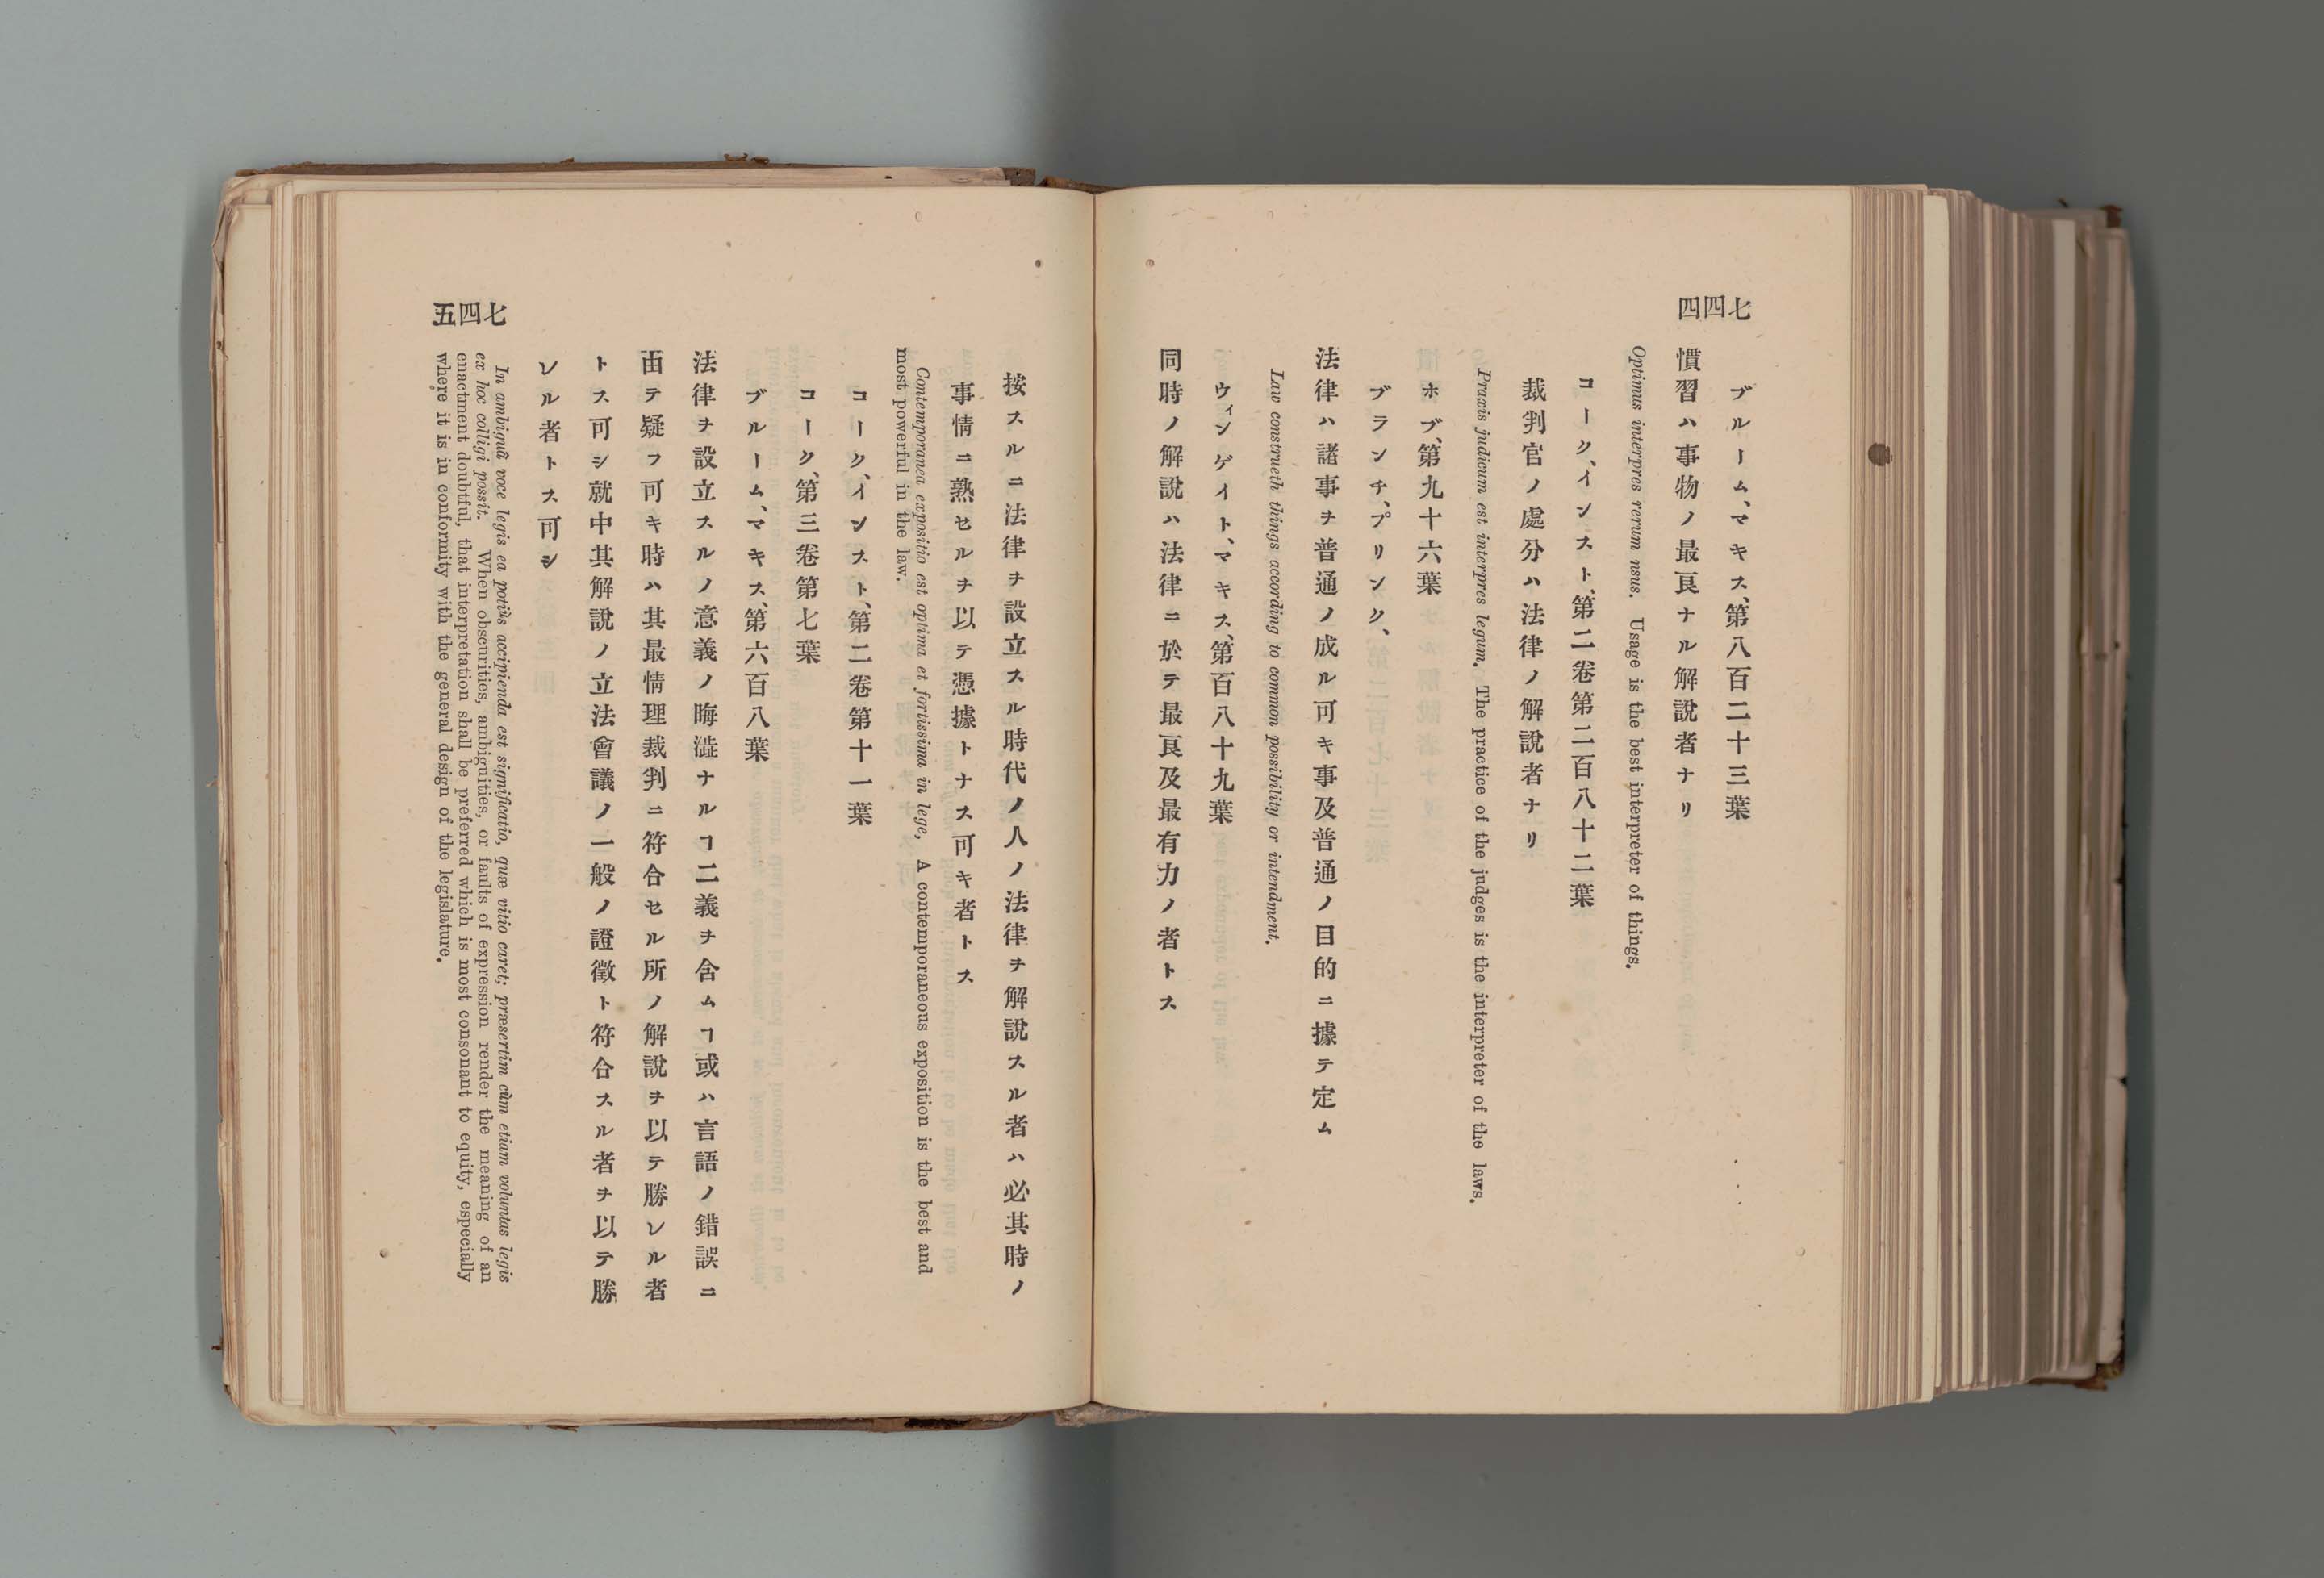 四四七
ブルーム、マキス、第八百二十三葉
慣習ハ事物ノ最良ナル解説者ナリ
Optimus interpres rerum usus. Usage is the best interpreter of things.
コーク、インスト、第二卷第二百八十二葉
裁判官ノ處分ハ法律ノ解説者ナリ
Praxis judicum est interpres legum. The practice of the judges is the interpreter of the laws.
ホブ、第九十六葉
ブランチ、プリンク、
法律ハ諸事ヲ普通ノ成ル可キ事及普通ノ目的ニ據テ定ム
Law construeth things according to common possibility or intendment.
ウィンゲイト、マキス、第百八十九葉
同時ノ解説ハ法律ニ於テ最良及最有力ノ者トス
五四七
按スルニ法律ヲ設立スル時代ノ人ノ法律ヲ解説スル者ハ必其時ノ
事情ニ熟セルヲ以テ憑據トナス可キ者トス
Contemporanea expositio est optima et fortissima in lege, A contemporaneous exposition is the best and
most powerful in the law.
コーク、インスト、第二卷第十一葉
コーク、第三卷第七葉
ブルーム、マキス、第六百八葉
法律ヲ設立スルノ意義ノ晦澁ナルヿ二義ヲ含ムヿ或ハ言語ノ錯誤ニ
由テ疑フ可キ時ハ其最情理裁判ニ符合セル所ノ解説ヲ以テ勝レル者
トス可シ就中其解説ノ立法會議ノ一般ノ證徵ト符合スル者ヲ以テ勝
レル者トス可シ
In ambiguâ voce legis ea potiùs accipienda est significatio, quæ vitio caret; præsertim cùm etiam voluntas legis
ex hoc colligi possit. When obscurities, ambiguities, or faults of expression render the meaning of an
enactment doubtful, that interpretation shall be preferred which is most consonant to equity, especially
where it is in conformity with the general design of the legislature.